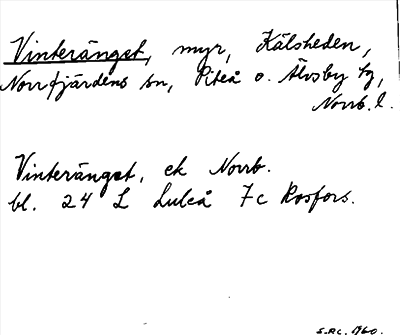 Vinteränget, myr, Kälsheden,
Norrfjärdens sn, Piteå o. Älvsby tg,
Norrb. l.
Vinteränget, ek Norrb.
bl. 24 L Luleå 7c Rosfors.
1960.